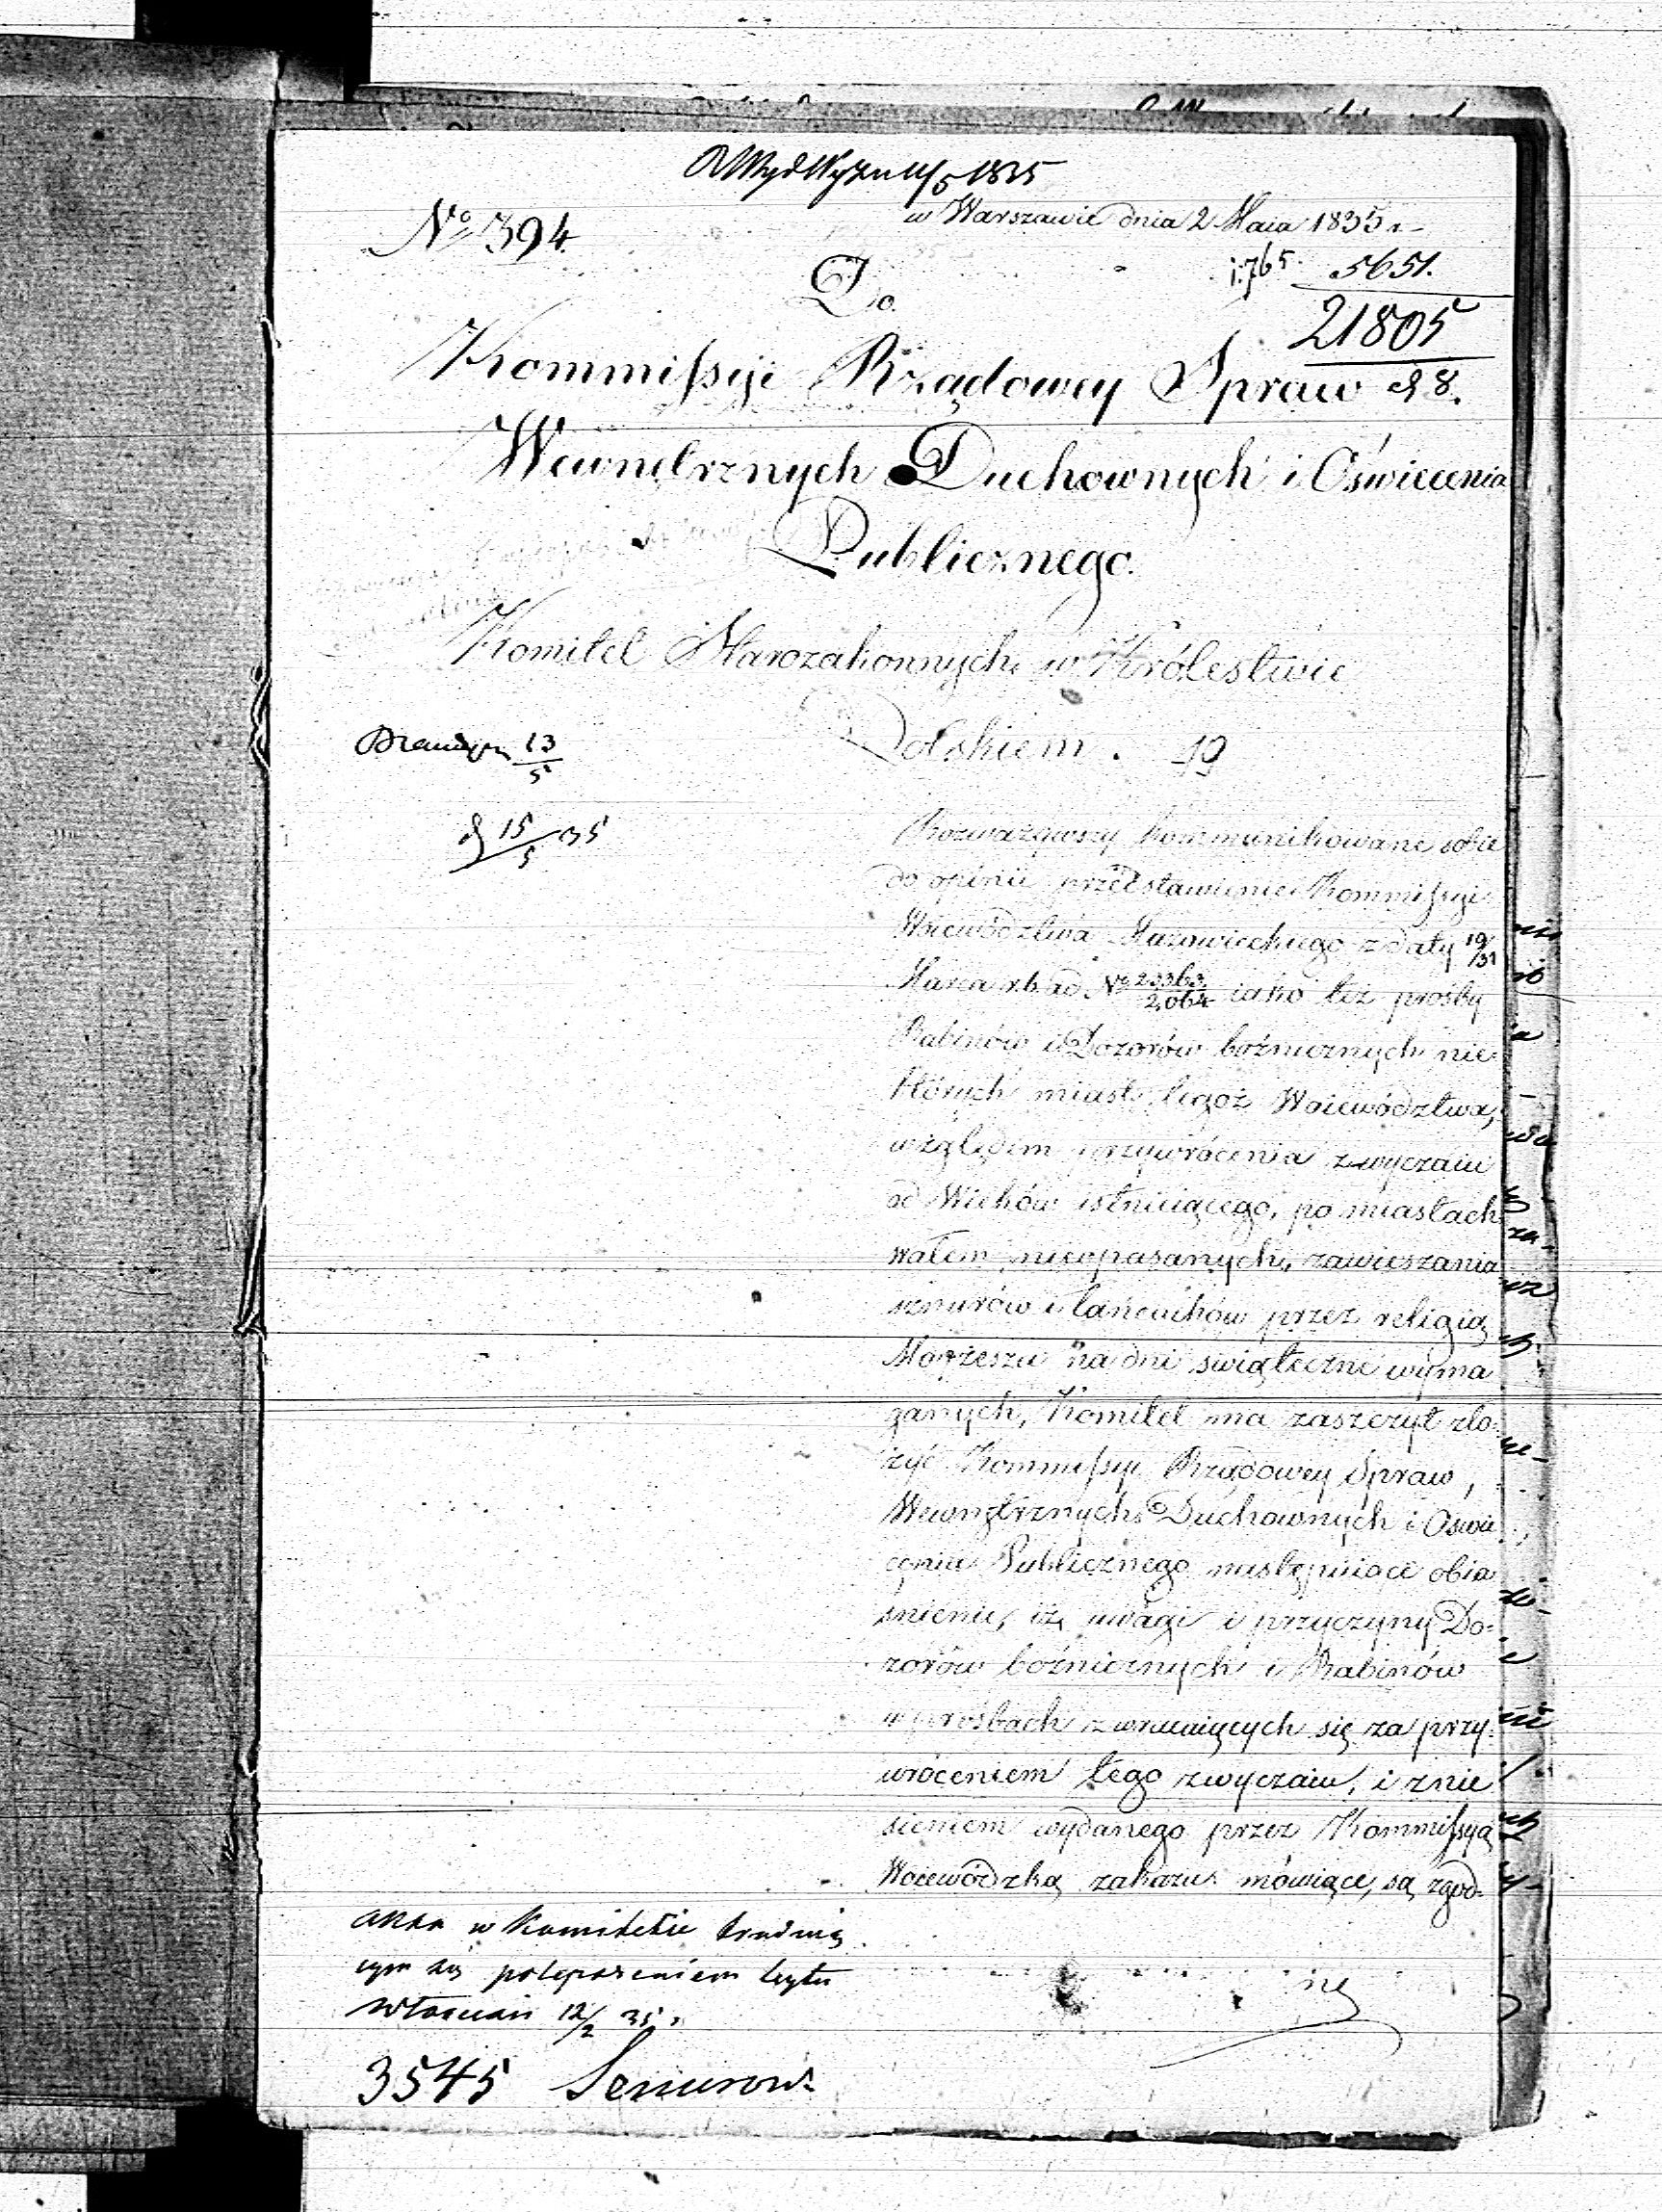 11/5 1835
w Warszawie dnia 2 Maia 1835 r.
No 394.
5651.
Do
21805
Kommissyi Rządowey Spraw 28.
Wewnętrznych Duchownych i Oświecenia
Publicznego.
Komitet Starozakonnych w Królestwie
Polskiem. 19
13/5
15/5 35
Rozważywszy kommunikowane sobie
do opinii przedstawienie Kommissyi
Woiewództwa Mazowieckiego z daty 19/31
Marca r.b. ad No 23363/2064 iako też prośby
Rabinów i Dozorów bóżniczych nie
których miast tegoż Woiewództwa,
względem przywrócenia zwyczaiu
od Wieków istnieiącego, po miastach
wałem nieopasanych, zawieszania
sznurów i łańcuchów przez religią
Moyżesza na dni świąteczne wyma
ganych, Komitet ma zaszczyt zło-
żyć Kommissyi Rządowey Spraw,
Wewnętrznych Duchownych i Oświe
cenia Publicznego następuiące obia
śnienie, iż uwagi i przyczyny Do-
zorów bóżnicznych i Rabinów
w prosbach zwracaiących się za przy
wróceniem tego zwyczaiu, i znie
sieniem wydanego przez Kommissyą
Woiewódzką zakazu mówiące, są zgod-
ne
akta w Komitecie trudnią
cym się polepszeniem bytu
włościan 12/2 35.
3545